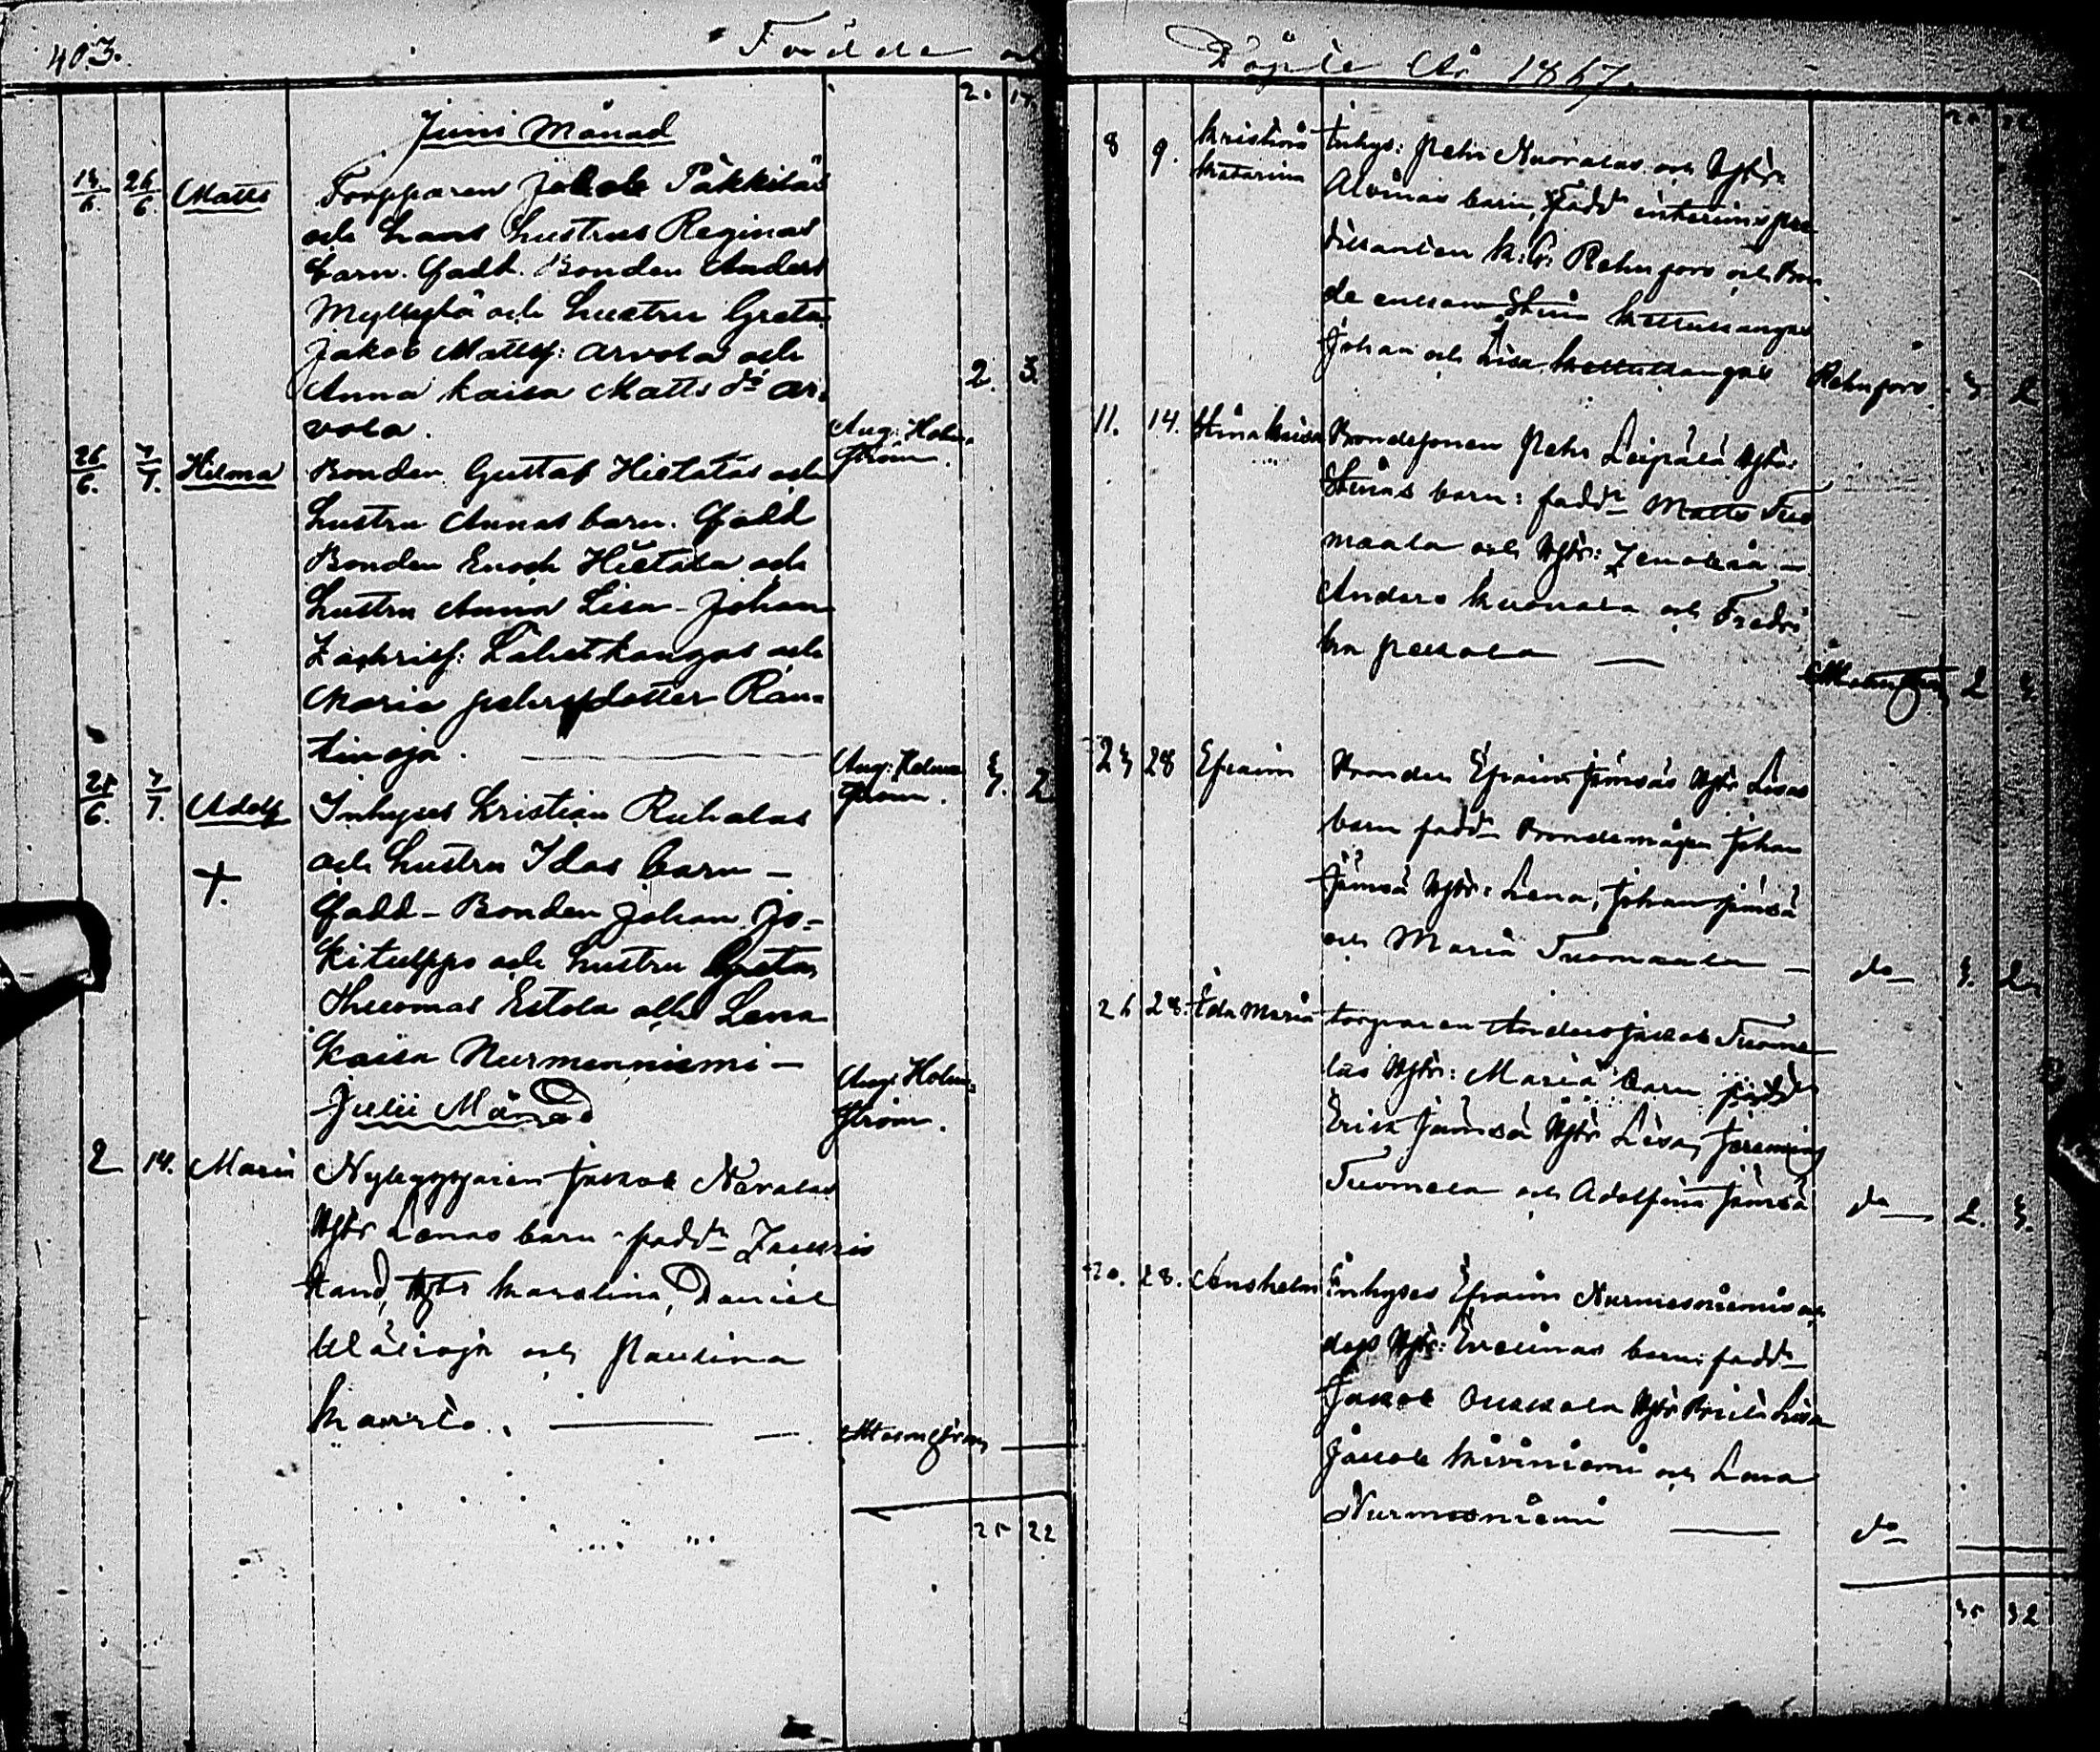 403.
Födde och
2. 17.
Juni Månad
18/6. 26/6. Matts
Torpparen Jakob Pakkilas
och hans hustrus Reginas
barn. Fadd. Bonden Anders
Myllylä och hustru Greta
Jakob Mattss: Arvola och
Anna Kaisa Matts dr Ar-
vola.
Aug. Holm-
ström.
2. 3.
26/6. 7/7. Hilma
Bonden Gustaf Hietalas och
hustru Annas barn. Fadd
Bonden Enoch Hietala och
hustru Anna Lisa - Johan
Zachriss: Lahetkangas och
Maria Pehrsdotter Ran-
tinoja.
Aug: Holm-
ström.
3. 2
28/6. 7/7. Adolf
†.
Inhyses Kristian Ruhalas
och hustru Idas barn -
Fadd - Bonden Johan Jo-
kitulppo och hustru Greta,
Thuomas Estola och Lena
Kaisa Nurmenniemi -
Aug. Holm-
ström.
Julii Månad
2 14. Maria
Nybyggaren Jakob Nevalas
Hstr Lenas barn - fadd
Hstr Karolina, Daniel
och Paulina
Kaarto.
25 22
Döpte År 1867.
8 9. Kristina
Katarina
Inhys: Pehr Nuoralas och Hstr:
Alvinas barn, Fadd interims pre
dikanten K: G: Rehnfors och Bon
de enkan Stina Kettukangas
Johan och Lisa Kettukangas
Rehnfors 3 2
11. 14. Stina Kaisa
Bondesonen Pehr Leipälä Hstr:
Stinas barn: fadd Matts Tuo
maala och Hstr:
Anders Kuonala och Fredri
ka Pekkala
2 3
23 28 Efraim
Bonden Efraim Jämsäs Hstr Lisas
barn fadd Bondemågen Johan
Jämsä Hstr: Lena, Johan Jämsä
och Maria Tuomaala -
do 3. 2.
26 28. Ida Maria
torparen Anders Jakob Tuome
las Hstr: Maria barn fadd
Erik Jämsä Hstr Lisa, Jeremias
Tuomela och Adolfina Jämsä
do 2. 3.
20. 28. Anshelm
Inhyses Efraim Nurmesniemis och
dess Hstr: Evelinas barn: fadd
Jakob Hstr Brita Lisa
Jakob Kiviniemi och Lena
Nurmesniemi
do
35 32